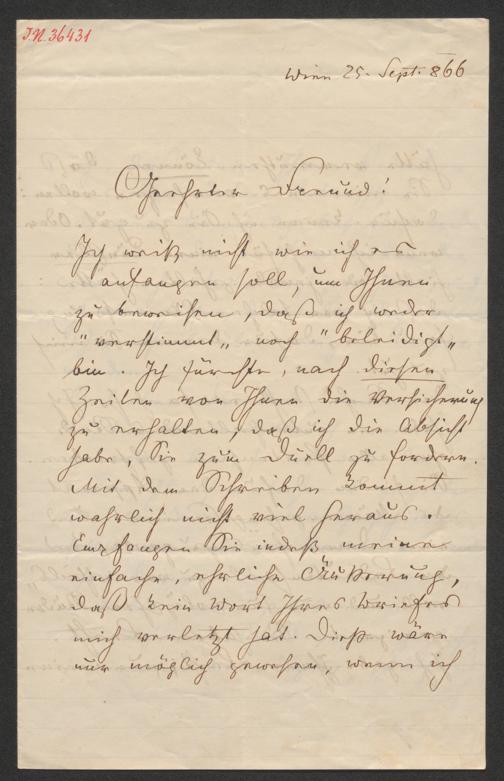 I.N. 36431
Wien 25. Sept. 866
Geehrter Freund!
Ich weiß nicht wie ich es
anfangen soll, um Ihnen
zu beweisen, daß ich weder
"verstimmt" noch "beleidigt"
bin. Ich fürchte, nach diesen
Zeilen von Ihnen die Versicherung
zu erhalten, daß ich die Absicht
habe, Sie zum Duell zu fordern.
Mit dem Schreiben kommt
wahrlich nicht viel heraus.
Empfangen Sie indeß meine
einfache, ehrliche Äußerung,
daß kein Wort Ihres Briefes
mich verletzt hat. Dieß wäre
nur möglich gewesen, wenn ich